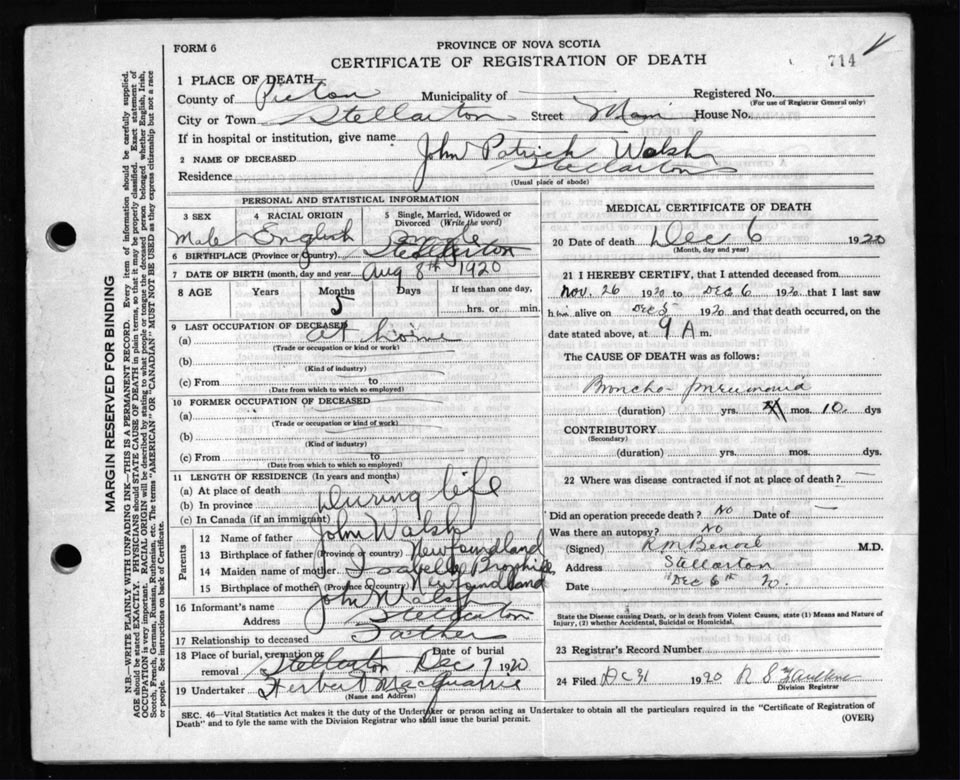 FORM 6
PROVINCE OF NOVA SCOTIA
CERTIFICATE OF REGISTRATION OF DEATH
714
1 PLACE OF DEATH
County of Pictou Municipality of — Registered No.
(For use of Registrar General only)
City or Town Stellarton Street Main House No.
If in hospital or institution, give name
2 NAME OF DECEASED John Patrick Walsh
Residence Stellarton
(Usual place of abode)
PERSONAL AND STATISTICAL INFORMATION
3 SEX 4 RACIAL ORIGIN 5 Single, Married, Widowed or Divorced (Write the word)
Male English Single
6 BIRTHPLACE (Province or country) Stellarton
7 DATE OF BIRTH (month, day and year) Aug 8th 1920
8 AGE Years Months Days If less than one day,
5 hrs. or min.
9 LAST OCCUPATION OF DECEASED
(a) at home
(Trade or occupation or kind or work)
(b)
(Kind of industry)
(c) From to
(Date from which to which so employed)
10 FORMER OCCUPATION OF DECEASED
(a)
(Trade or occupation or kind of work)
(b)
(Kind of industry)
(c) From to
(Date from which to which so employed)
11 LENGTH OF RESIDENCE (In years and months)
(a) At place of death
(b) In province During life
(c) In Canada (if an immigrant)
Parents
12 Name of father John Walsh
13 Birthplace of father (Province or country) Newfoundland
14 Maiden name of mother Isabelle
15 Birthplace of mother (Province or country) Newfoundland
16 Informant's name John Walsh
Address Stellarton
17 Relationship to deceased Father
18 Place of burial, cremation or removal Stellarton Date of burial Dec 7 1920
19 Undertaker Herbert MacQuarrie
(Name and Address)
MEDICAL CERTIFICATE OF DEATH
20 Date of death Dec 6 1920
(Month, day and year)
21 I HEREBY CERTIFY, that I attended deceased from
Nov. 26 1920 to Dec 6 1920 that I last saw
him alive on Dec 5 1920 and that death occurred, on the
date stated above, at 9 A m.
The CAUSE OF DEATH was as follows:
Broncho-pneumonia
(duration) yrs. mos. 10 dys
CONTRIBUTORY
(Secondary)
(duration) yrs. mos. dys.
22 Where was disease contracted if not at place of death?
Did an operation precede death? No Date of —
Was there an autopsy? No
(Signed) R M Benvie M.D.
Address Stellarton
Date Dec 6th 20.
State the Disease causing Death, or in death from Violent Causes, state (1) Means and Nature of
Injury, (2) whether Accidental, Suicidal or Homicidal.
23 Registrar's Record Number
24 Filed Dec 31 1920 R S
Division Registrar
SEC. 46—Vital Statistics Act makes it the duty of the Undertaker or person acting as Undertaker to obtain all the particulars required in the "Certificate of Registration of
Death" and to fyle the same with the Division Registrar who shall issue the burial permit.
(OVER)
MARGIN RESERVED FOR BINDING
N.B.—WRITE PLAINLY WITH UNFADING INK—THIS IS A PERMANENT RECORD. Every item of information should be carefully supplied.
AGE should be stated EXACTLY. PHYSICIANS should STATE CAUSE OF DEATH in plain terms, so that it may be properly classified. Exact statement of
OCCUPATION is very important. RACIAL ORIGIN will be described by stating to what people or tongue the deceased person belonged whether English, Irish,
Scotch, French, German, Russian, Ruthenian, etc. The terms "AMERICAN" OR "CANADIAN" MUST NOT BE USED as they express citizenship but not a race
or people. See instructions on back of Certificate.